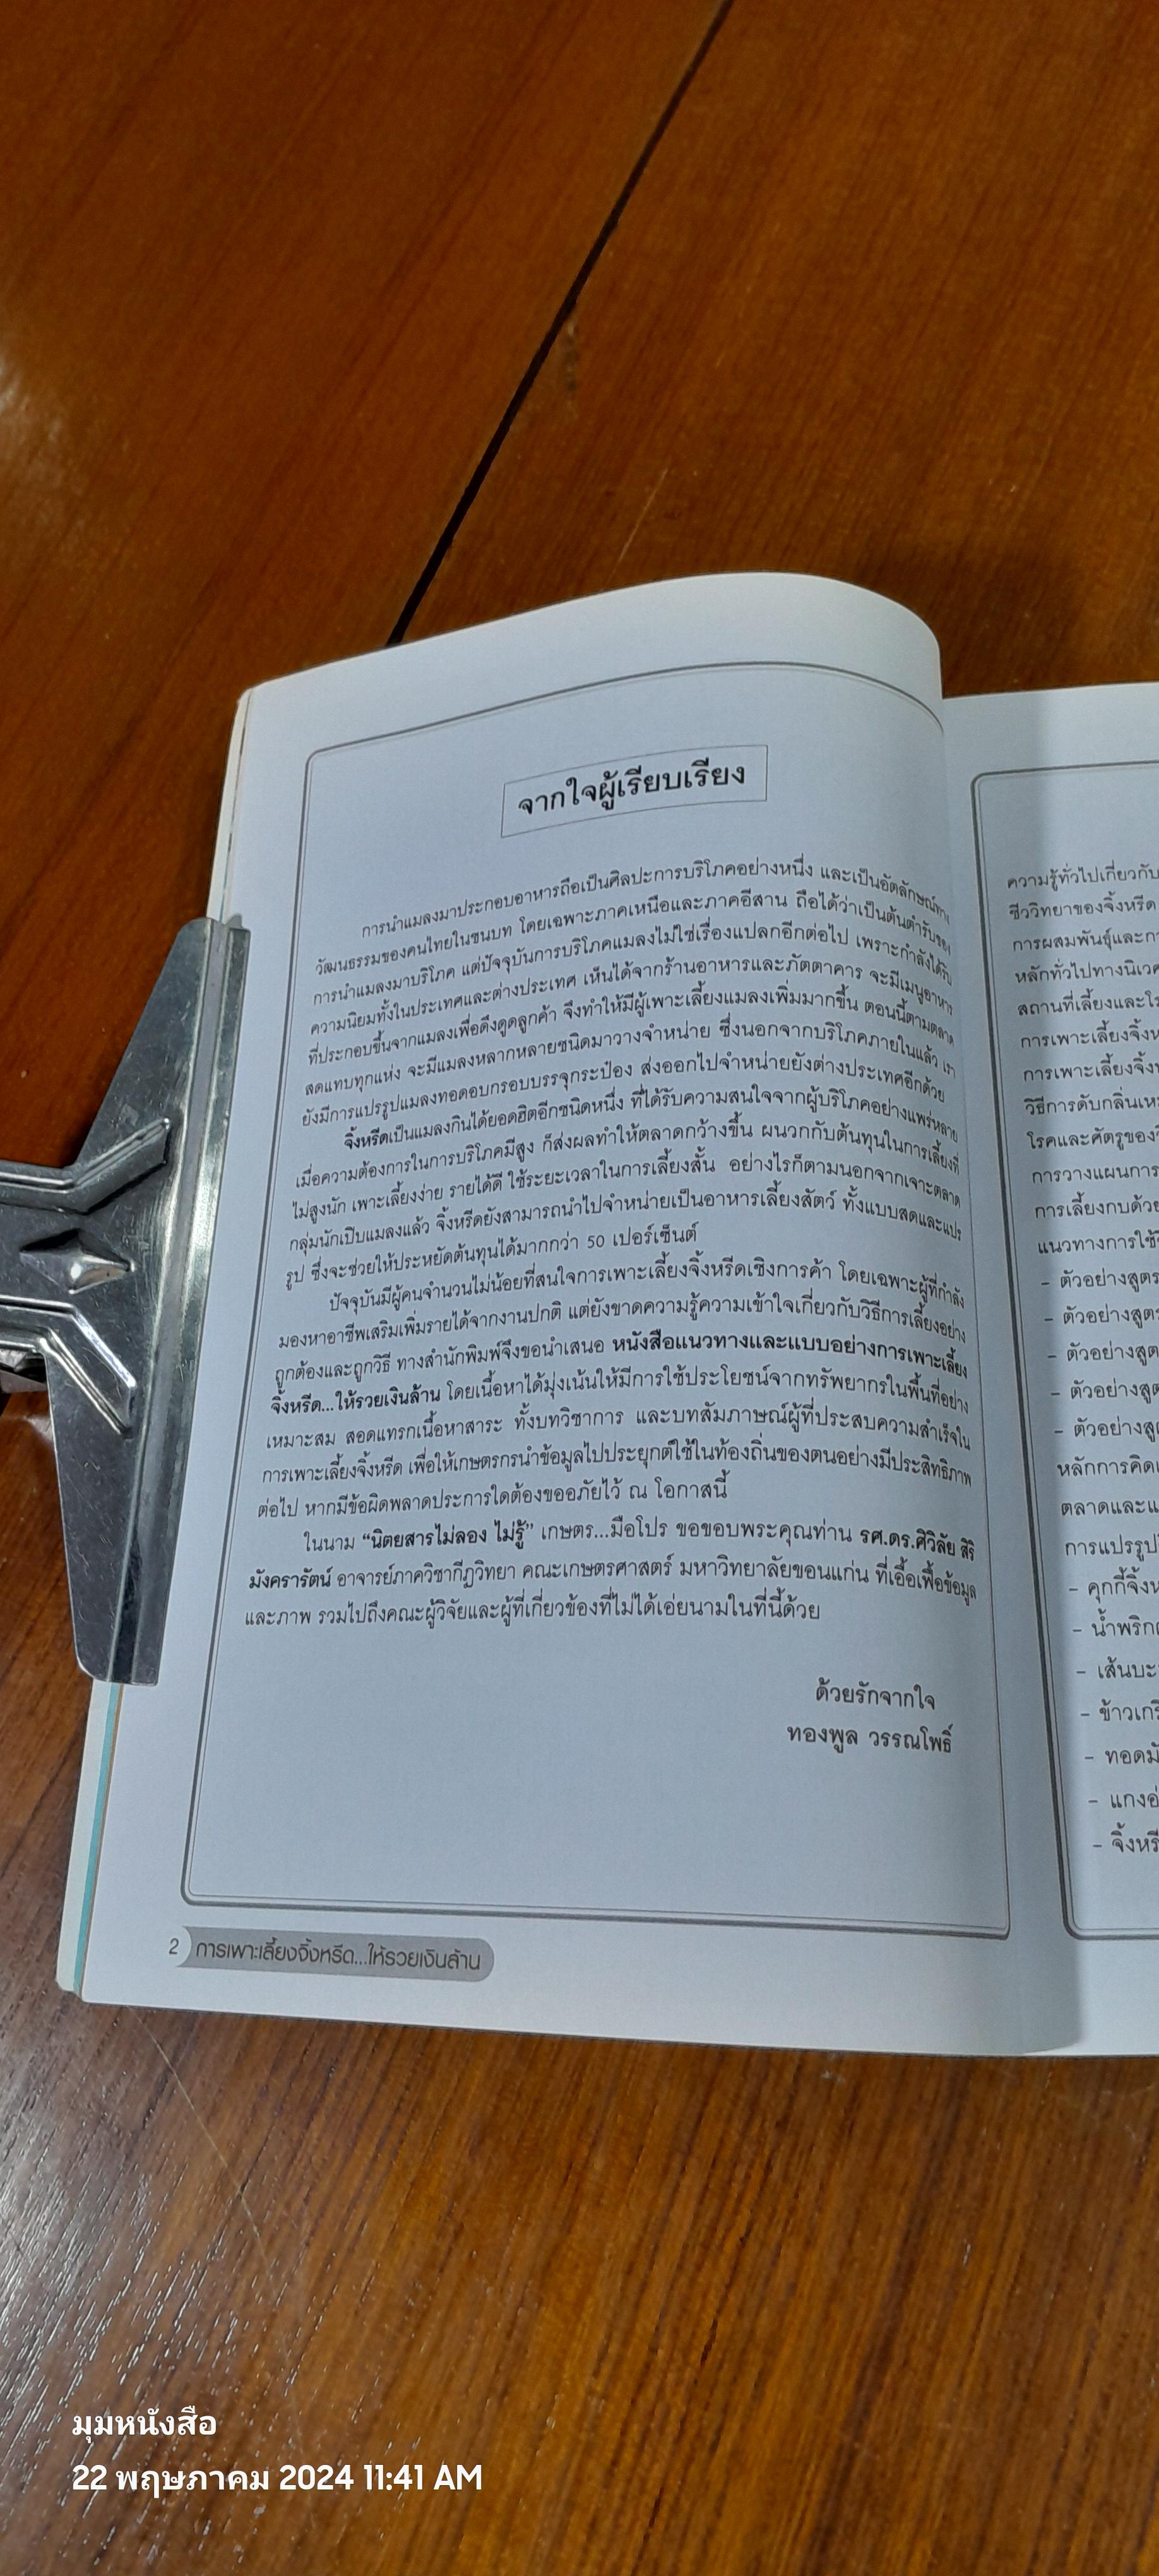 จากใจผู้เรียบเรียง
การนำแมลงมาประกอบอาหารถือเป็นศิลปะการบริโภคอย่างหนึ่ง และเป็นอัตลักษณ์ทาง
วัฒนธรรมของคนไทยในชนบท โดยเฉพาะภาคเหนือและภาคอีสาน ถือได้ว่าเป็นต้นตำรับของ
การนำแมลงมาบริโภค แต่ปัจจุบันการบริโภคแมลงไม่ใช่เรื่องแปลกอีกต่อไป เพราะกำลังได้รับ
ความนิยมทั้งในประเทศและต่างประเทศ เห็นได้จากร้านอาหารและภัตตาคาร จะมีเมนูอาหาร
ที่ประกอบขึ้นจากแมลงเพื่อดึงดูดลูกค้า จึงทำให้มีผู้เพาะเลี้ยงแมลงเพิ่มมากขึ้น ตอนนี้ตามตลาด
สดแทบทุกแห่ง จะมีแมลงหลากหลายชนิดมาวางจำหน่าย ซึ่งนอกจากบริโภคภายในแล้ว เรา
ยังมีการแปรรูปแมลงทอดอบกรอบบรรจุกระป๋อง ส่งออกไปจำหน่ายยังต่างประเทศอีกด้วย
จิ้งหรีดเป็นแมลงกินได้ยอดฮิตอีกชนิดหนึ่ง ที่ได้รับความสนใจจากผู้บริโภคอย่างแพร่หลาย
เมื่อความต้องการในการบริโภคมีสูง ก็ส่งผลทำให้ตลาดกว้างขึ้น ผนวกกับต้นทุนในการเลี้ยงที่
ไม่สูงนัก เพาะเลี้ยงง่าย รายได้ดี ใช้ระยะเวลาในการเลี้ยงสั้น อย่างไรก็ตามนอกจากเจาะตลาด
กลุ่มนักเปิบแมลงแล้ว จิ้งหรีดยังสามารถนำไปจำหน่ายเป็นอาหารเลี้ยงสัตว์ ทั้งแบบสดและแปร
รูป ซึ่งจะช่วยให้ประหยัดต้นทุนได้มากกว่า 50 เปอร์เซ็นต์
ปัจจุบันมีผู้คนจำนวนไม่น้อยที่สนใจการเพาะเลี้ยงจิ้งหรีดเชิงการค้า โดยเฉพาะผู้ที่กำลัง
มองหาอาชีพเสริมเพิ่มรายได้จากงานปกติ แต่ยังขาดความรู้ความเข้าใจเกี่ยวกับวิธีการเลี้ยงอย่าง
ถูกต้องและถูกวิธี ทางสำนักพิมพ์จึงขอนำเสนอ หนังสือแนวทางและแบบอย่างการเพาะเลี้ยง
จิ้งหรีด...ให้รวยเงินล้าน โดยเนื้อหาได้มุ่งเน้นให้มีการใช้ประโยชน์จากทรัพยากรในพื้นที่อย่าง
เหมาะสม สอดแทรกเนื้อหาสาระ ทั้งบทวิชาการ และบทสัมภาษณ์ผู้ที่ประสบความสำเร็จใน
การเพาะเลี้ยงจิ้งหรีด เพื่อให้เกษตรกรนำข้อมูลไปประยุกต์ใช้ในท้องถิ่นของตนอย่างมีประสิทธิภาพ
ต่อไป หากมีข้อผิดพลาดประการใดต้องขออภัยไว้ ณ โอกาสนี้
ในนาม “นิตยสารไม่ลอง ไม่รู้” เกษตร...มือโปร ขอขอบพระคุณท่าน รศ.ดร.ศิวิลัย สิริ
มังครารัตน์ อาจารย์ภาควิชากีฏวิทยา คณะเกษตรศาสตร์ มหาวิทยาลัยขอนแก่น ที่เอื้อเฟื้อข้อมูล
และภาพ รวมไปถึงคณะผู้วิจัยและผู้ที่เกี่ยวข้องที่ไม่ได้เอ่ยนามในที่นี้ด้วย
ด้วยรักจากใจ
ทองพูล วรรณโพธิ์
2 การเพาะเลี้ยงจิ้งหรีด...ให้รวยเงินล้าน
ความรู้ทั่วไปเกี่ยวกับ
ชีววิทยาของจิ้งหรีด
การผสมพันธุ์และ
หลักทั่วไปทางนิเวศ
สถานที่เลี้ยงและ
การเพาะเลี้ยง
การเพาะเลี้ยง
วิธีการดับกลิ่น
โรคและศัตรูของ
การวางแผนการ
การเลี้ยงกบด้วย
แนวทางการใช้
- ตัวอย่างสูตร
- ตัวอย่างสูตร
- ตัวอย่างสูต
- ตัวอย่างสูต
- ตัวอย่างสู
หลักการคิด
ตลาดและ
การแปรรูป
- คุกกี้จิ้งห
- น้ำพริก
- เส้นบะ
- ข้าวเกรี
- ทอดมั
- แกงอ่
- จิ้งหรี
มุมหนังสือ
22 พฤษภาคม 2024 11:41 AM